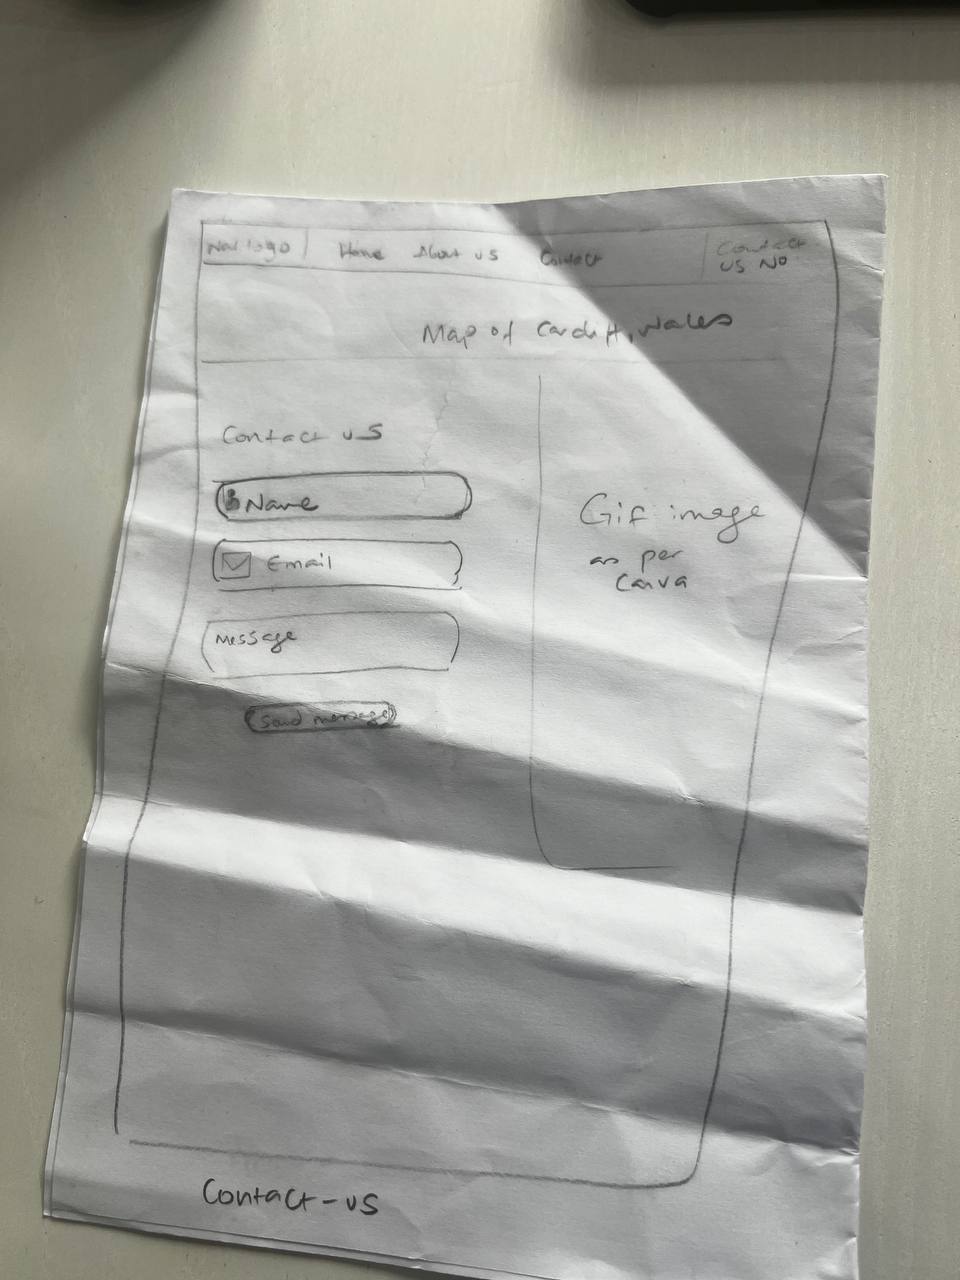 Nav logo Home About us Contact Contact
US NO
Map of Cardiff, Wales
Contact us
Name
Email
Message
Send message
Gif image
as per
Canva
Contact-us